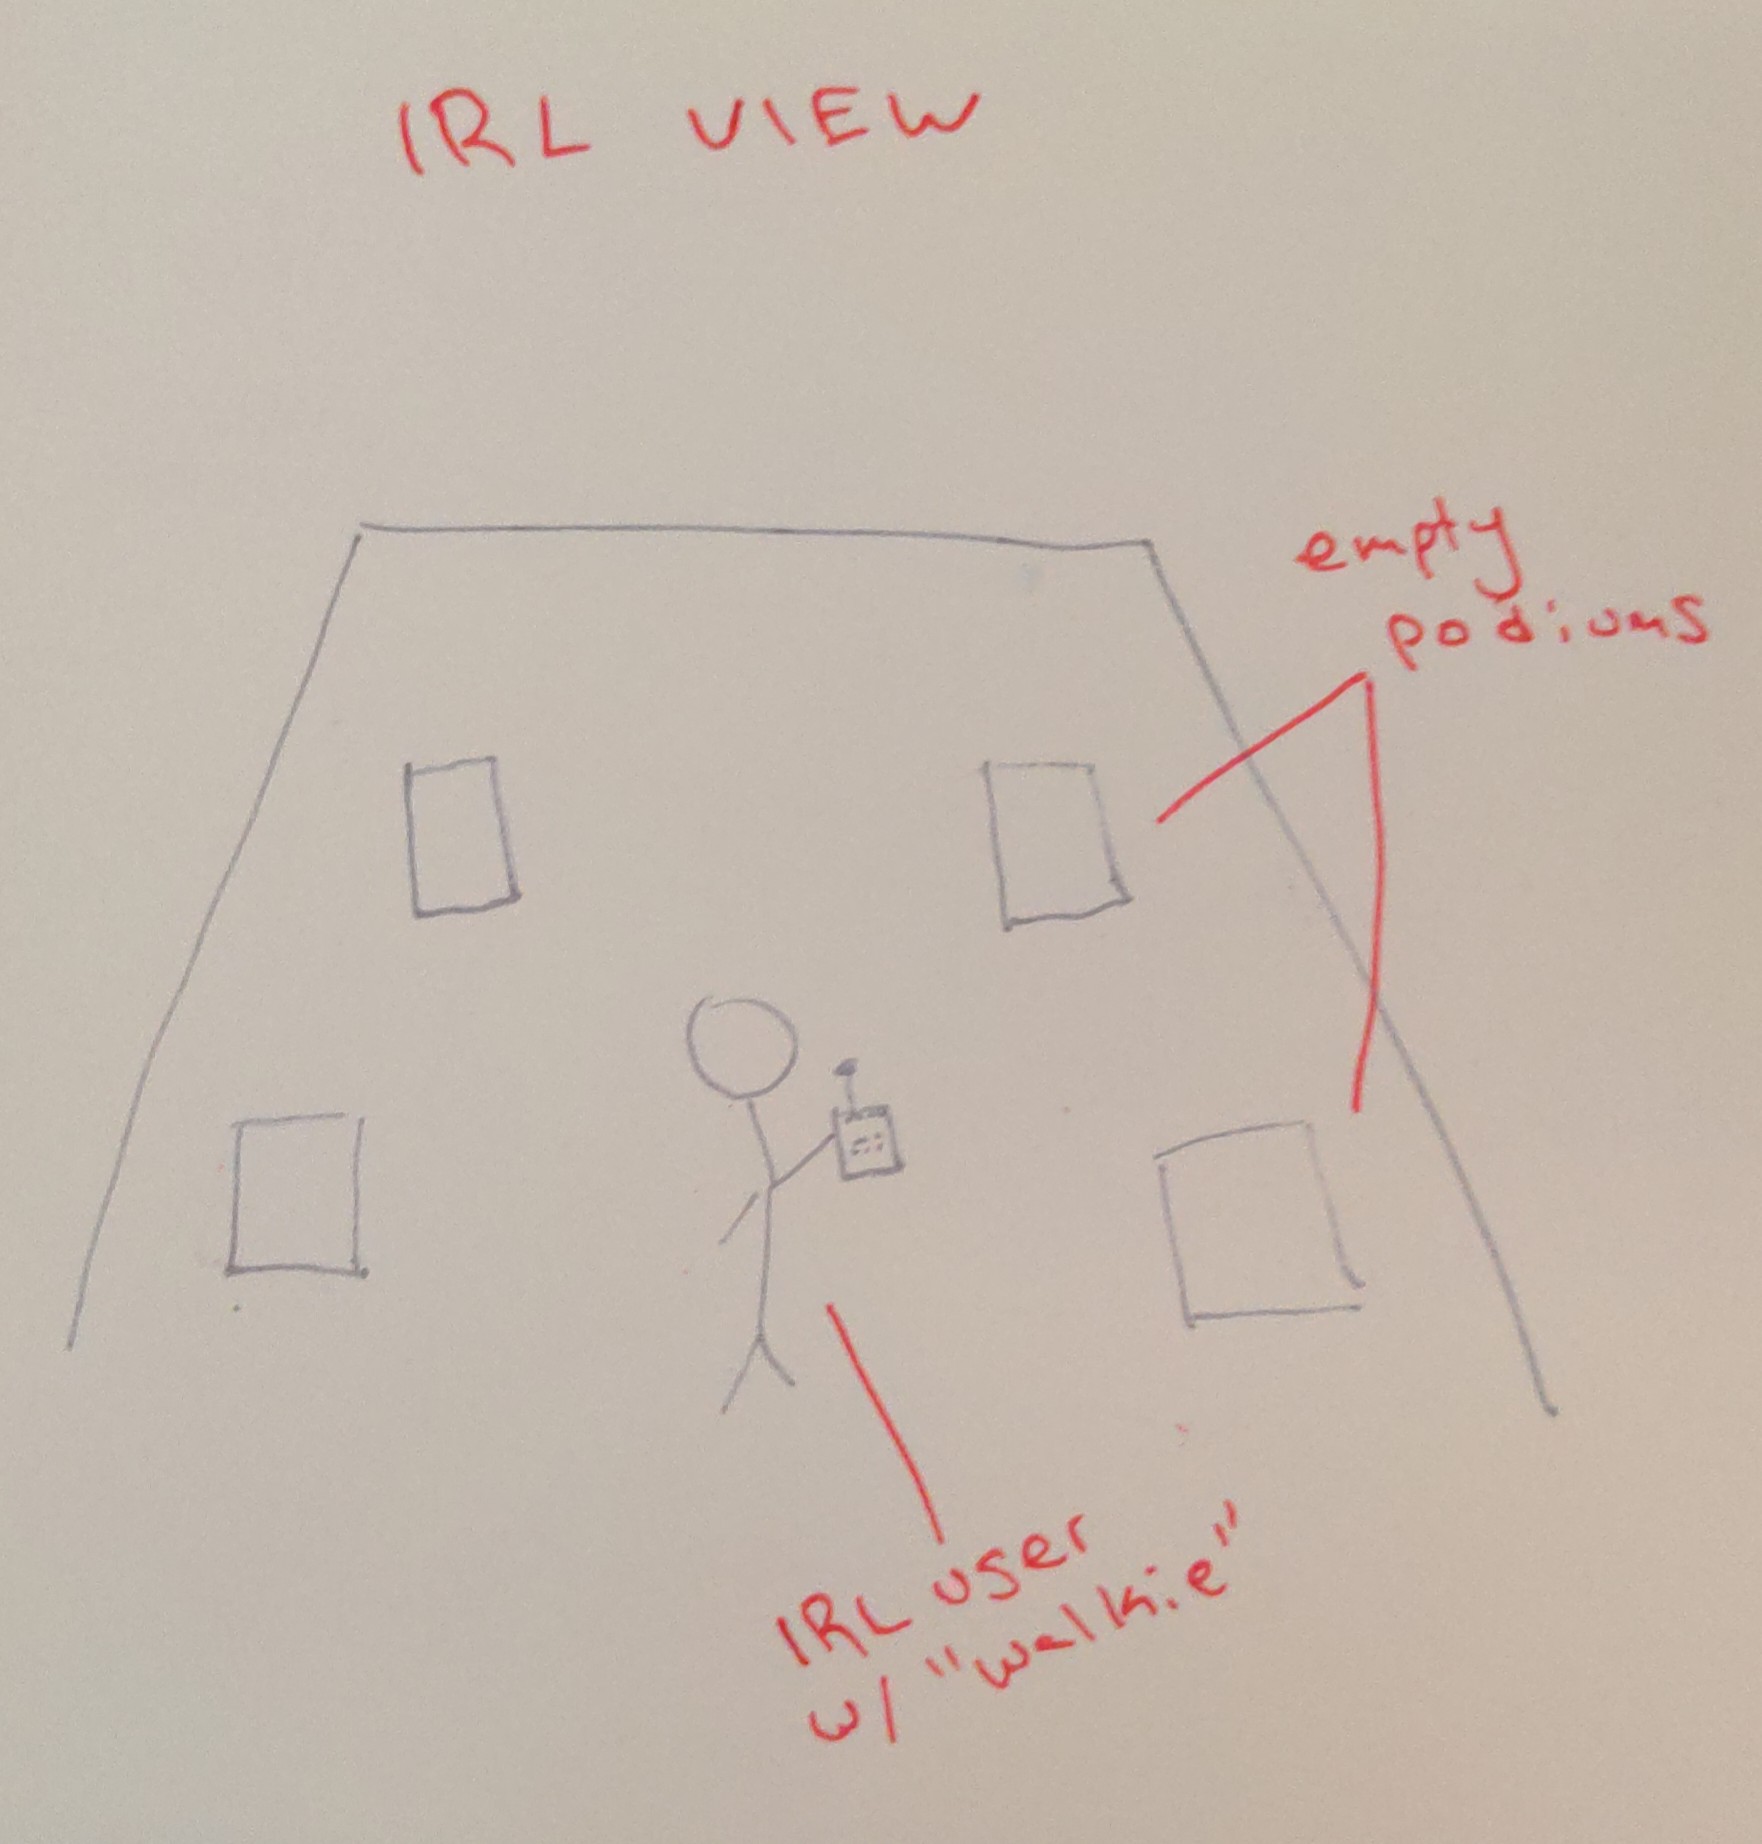 IRL VIEW
empty
podiums
IRL user
w/ "walkie"